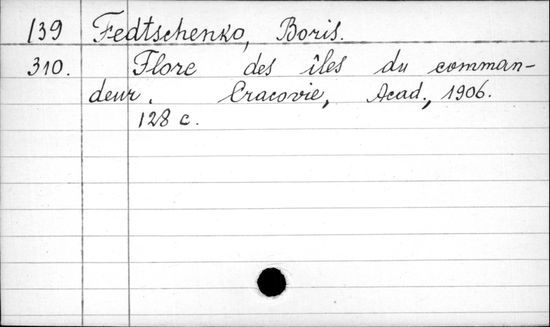 139 Fedtschenko, Boris.
310. Flore des îles du comman-
deur. Cracovie, Acad., 1906.
128 c.